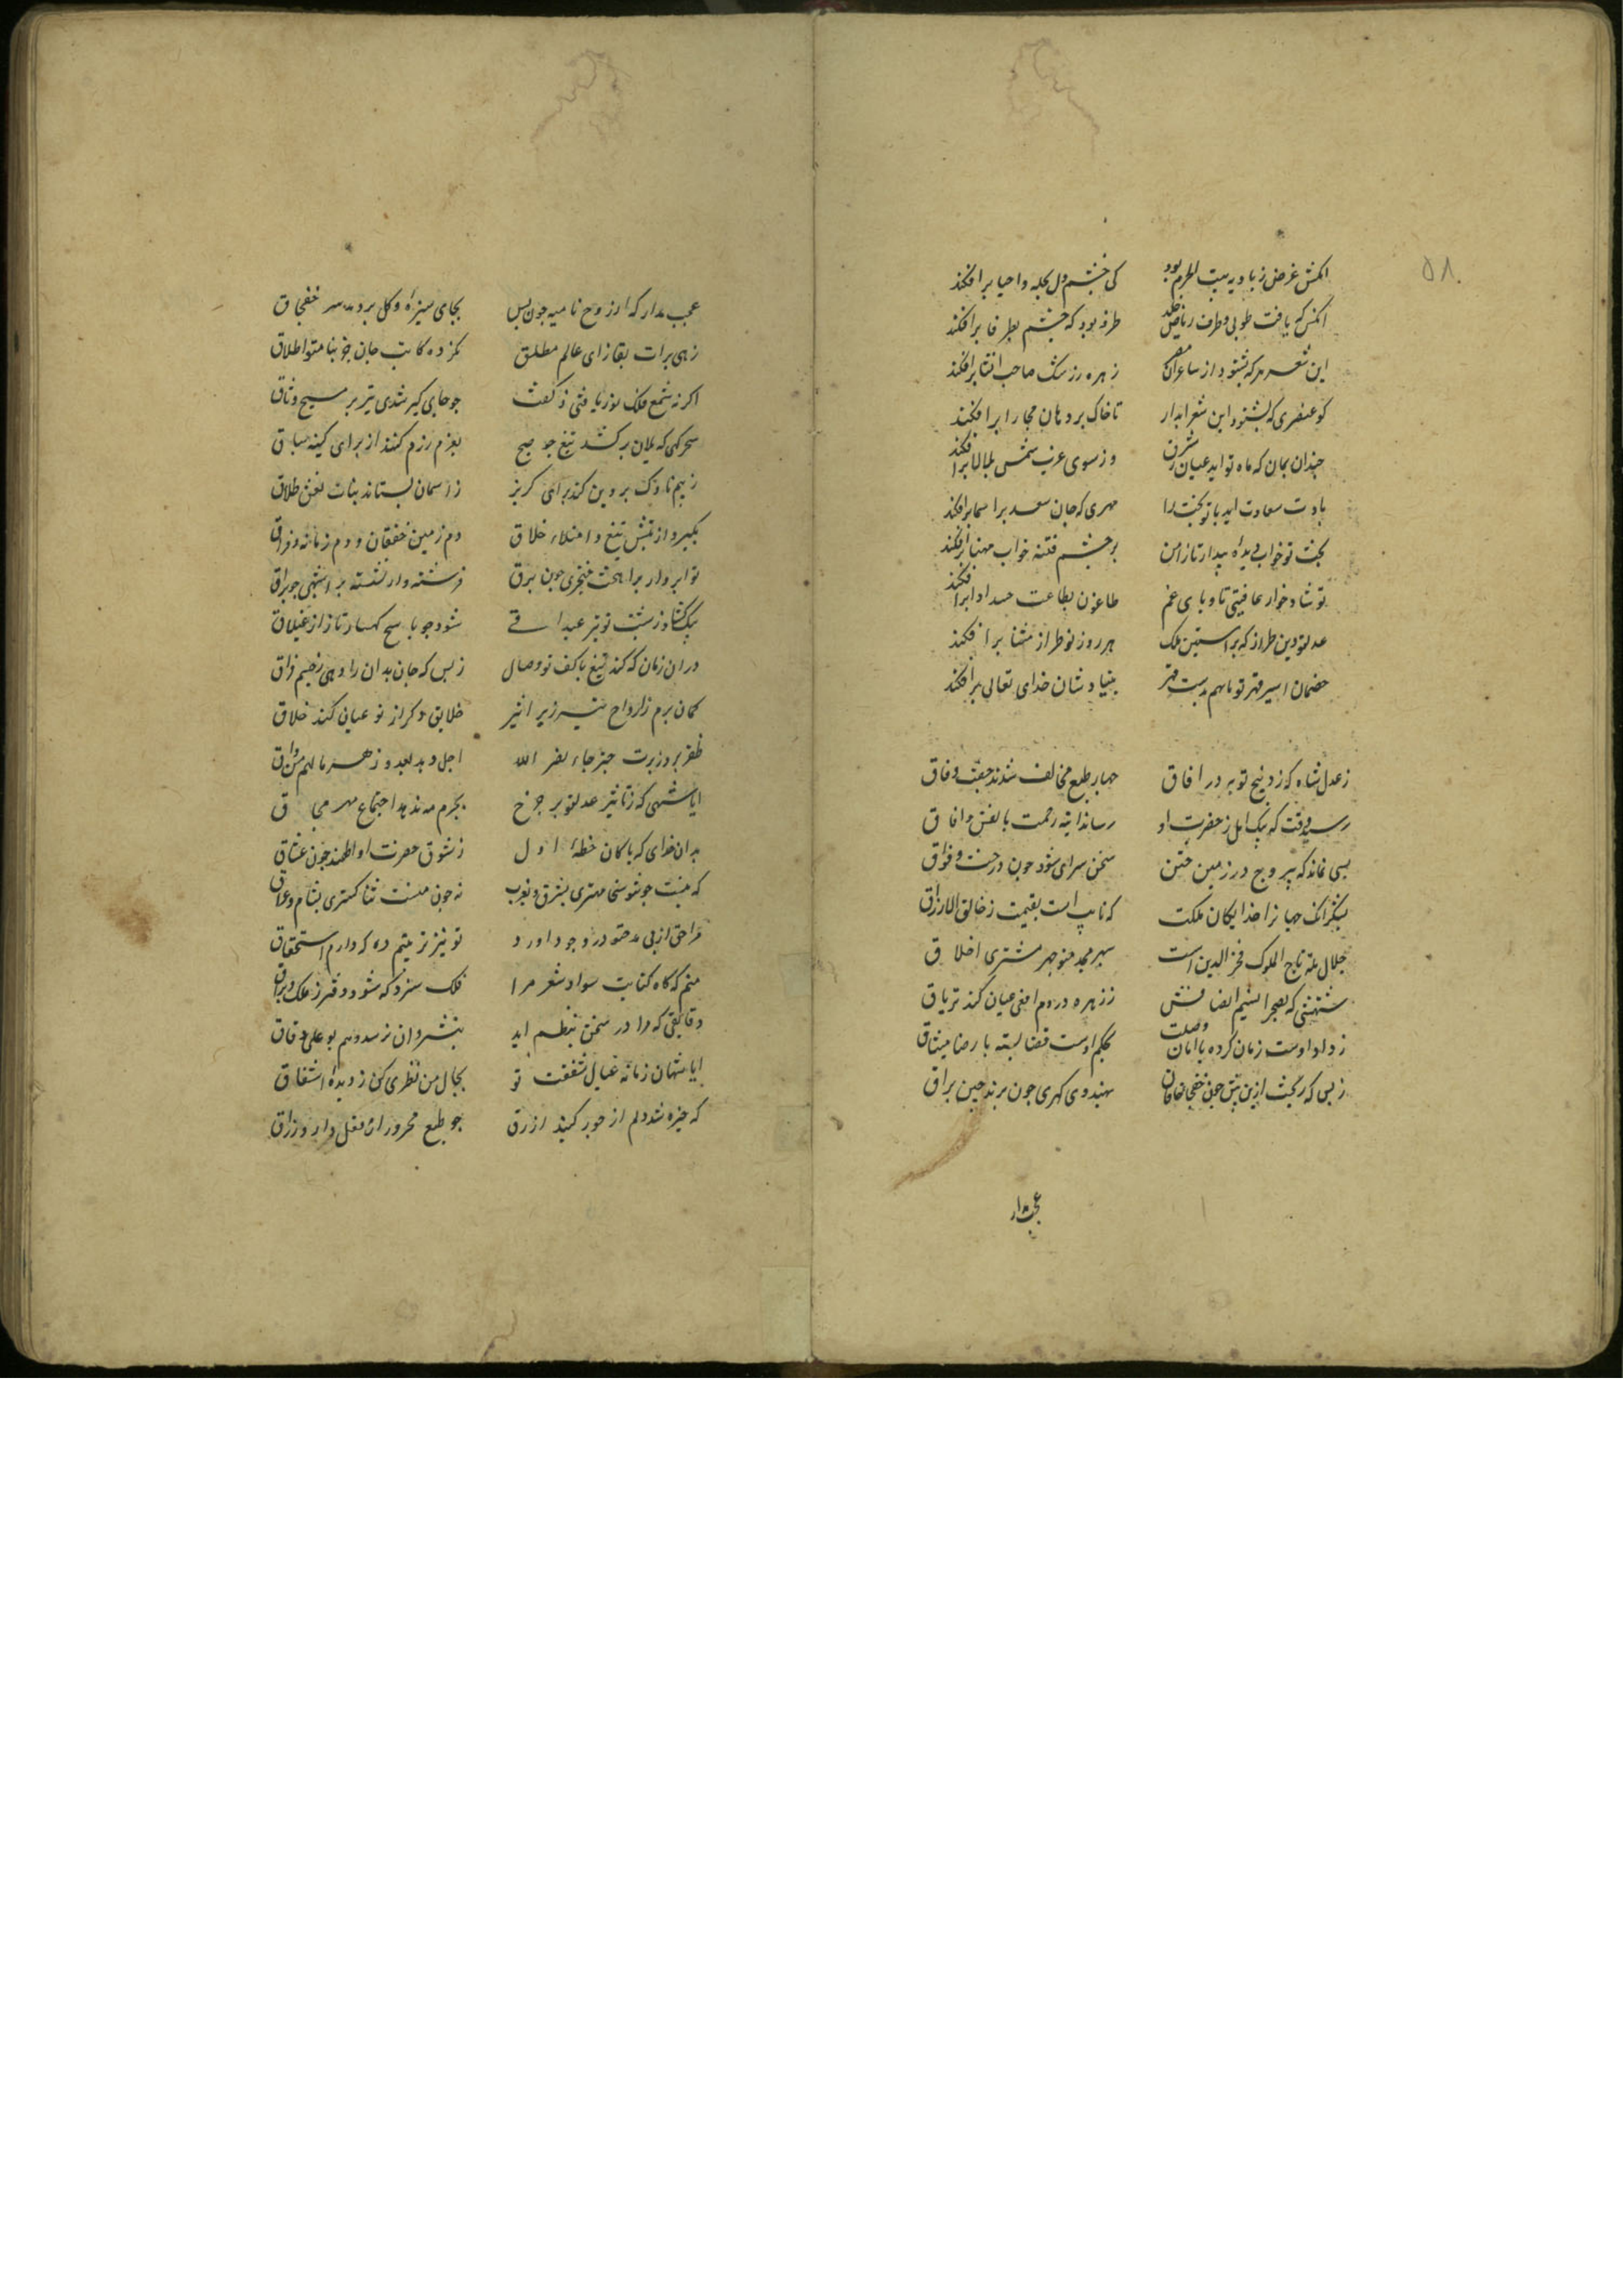 ۵۸
انکش غرض ز بادیه بیت الحرم بود کی چشم دل بحله و احیا برافکند
انکس که یافت طوبی و طرف ریاض خلد طرفه بود که چشم بطرفا برافکند
این شعر هرکه بشنود از شاعران عصر زهره رزشک صاحب انشا برافکند
کو عنصری که بشنود این شعر ابدار تا خاک بر دهان مجارا برافکند
چندان بمان که ماه نو اید عیان ز شرق وز سوی غرب شمس
بادت سعادت ابد و با تو بخت را مهری که جان سعد براسما برافکند
بخت تو خوابی دیده بیدار تا ز امن بر چشم فتنه خواب مهنا برافکند
تو شادخوار عافیتی تا وبای غم طاعون بطاعت حسد
عدل تو دین طراز که بر آستین ملک هر روز نو طراز مثنا برافکند
خصمان اسیر قهر تو تا هم بدست قهر بنیادشان خدای تعالی برافکند
ز عدل شاه که زد پنج نوبه در افاق چهار طبع مخالف شدند جفت وفاق
رسید وقت که پیک امل ز حضرت او رساند ایه رحمت بانفس و افاق
بسی نماند که بی روح در زمین ختن سخن سرای شود چون درخت وقواق
بشکر انک جهانرا خدایکان ملکت که نایب است بقسمت ز خالق الارزاق
جلال ملة تاج الملوک فخر الدین است سپهر مجد منوچهر مشتری اخلاق
شهنشهی که بصحرا نسیم انصافش ز زهره در دم افعی عیان کند تریاق
ز داد اوست زمان کرده با امان وصلت بحکم اوست قضا بسته با رضا میثاق
ز بس که ریخت ازین پیش خون خفجاقان بهندوی کهری چون پرند چین براق
عجب مدار
عجب مدار که از روح نامیه چون پس بجای سبزه و کل بردمد سر خفجاق
زهی برات بقا ز ای عالم مطلق نکرده کاتب جان جز بنام تو اطلاق
اکر نه شمع فلک نور یافتی ز کفت چو جای کبر شدی تیره بر مسیح وثاق
سحرکهی که یلان برکشند تیغ چو صبح بعزم رزم کنند از برای کینه سباق
ز بیم ناوک پروین کند برای کریز ز اسمان بستاند بنات نعش طلاق
بکیرد از تپش تیغ و امتلاء خلاق دم زمین خفقان و دم زمانه فواق
تو ابروار براهخت خنجری چون برق فرشته وار نشسته بر اشهبی چو براق
بیک کشاد ز شست تو تیر عیداقی شود چو باسخ کهسار تا ز از غیلاق
در ان زمان که کند تیغ با کف تو وصال ز بس که جان بدان را دهی ز جسم فراق
کمان برم ز ارواح بزیر اثیر خلایق دکر از نو عیانی کند خلاق
ظفر برد ز برت خبر جاء نصر الله اجل دمد بعدو زهر مالهم من واق
ایا شهی که ز تاثیر عدل تو بر چرخ بجرم مه ندهد اجتماع مهر محاق
بدان خدای که پاکان خطهٔ اول ز شوق حضرت او اطمند چون عشاق
که نیست چو تو سخا مهتری بشرق و بغرب نه چون منست ثنا کستری بشام و عراق
مرا حق از پی مدحت در وجود اورد تو نیز تربیتم ده که دارم استحقاق
منم که کاه کتابت سواد شعر مرا فلک سزد که شود دفتر ز ملک وراق
دقایقی که مرا در سخن بنظم اید بنثر وان نرسد وهم بوعلی دقاق
ایا شهان زمانه عیال شفقت تو بحال من نظری کن ز دیده اشفاق
که خیره شد دلم از جور کنبذ ازرق چو طبع محروران ز فعل دارو زراق